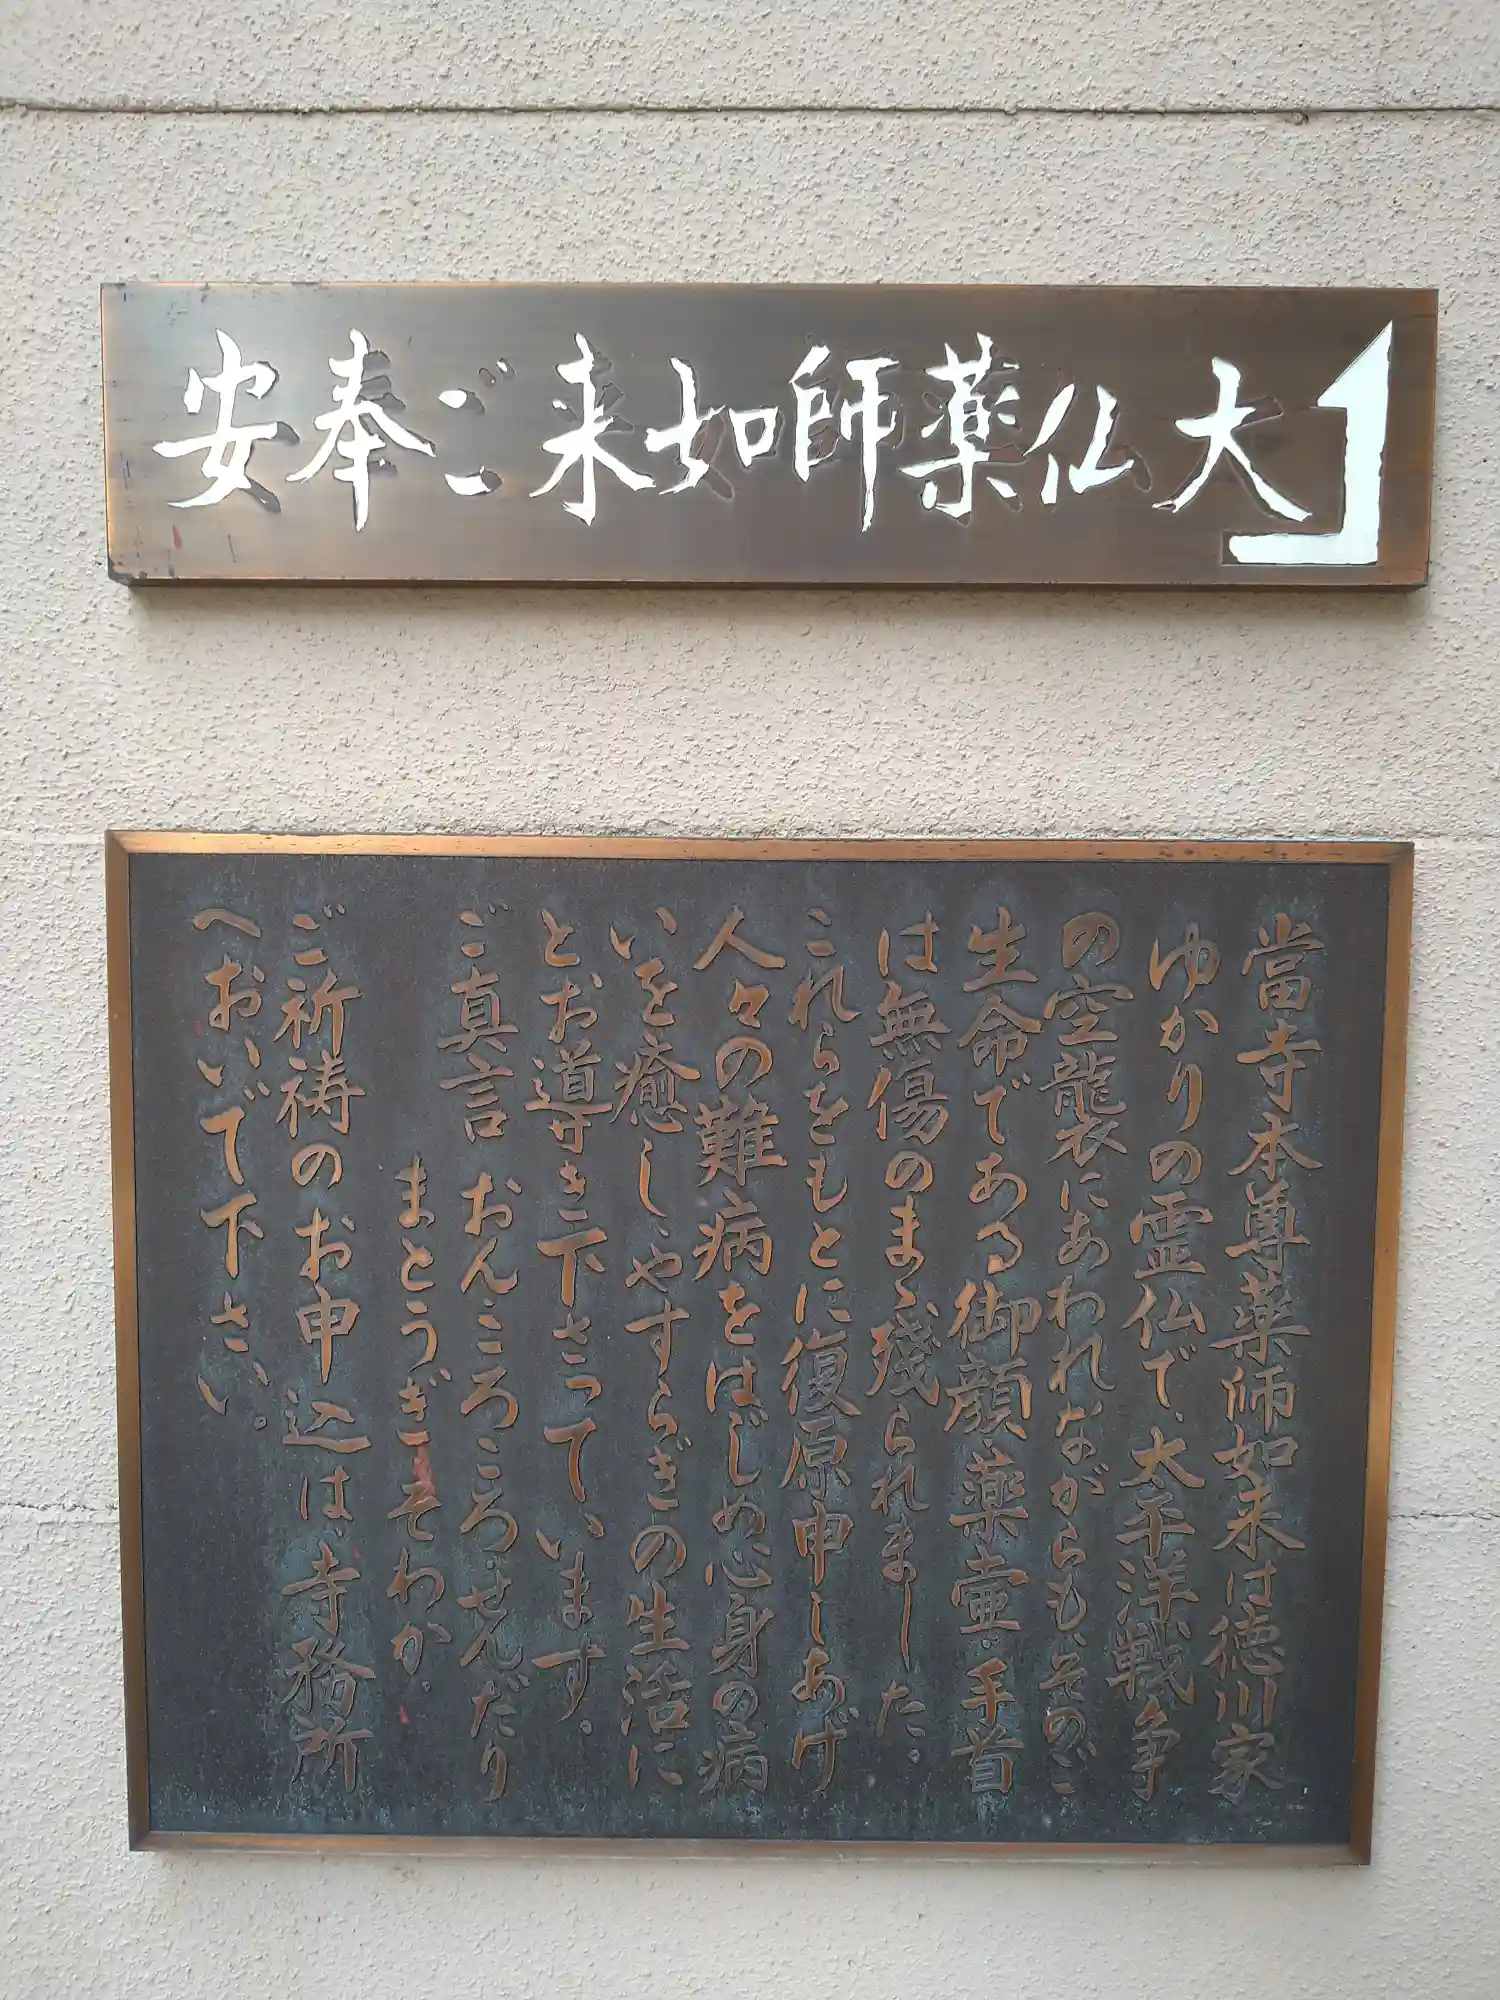 大仏薬師如来ご奉安
當寺本尊薬師如来は徳川家
ゆかりの霊仏で、太平洋戦争
の空襲にあわれながらも、そのご
生命である御顔・薬壷・手首
は無傷のまゝ残られました。
これらをもとに復原申しあげ
人々の難病をはじめ心身の病
いを癒し、やすらぎの生活に
とお導き下さっています。
ご真言 おんころころ・せんだり
まとうぎ・そわか。
ご祈祷のお申込は、寺務所
へおいで下さい。